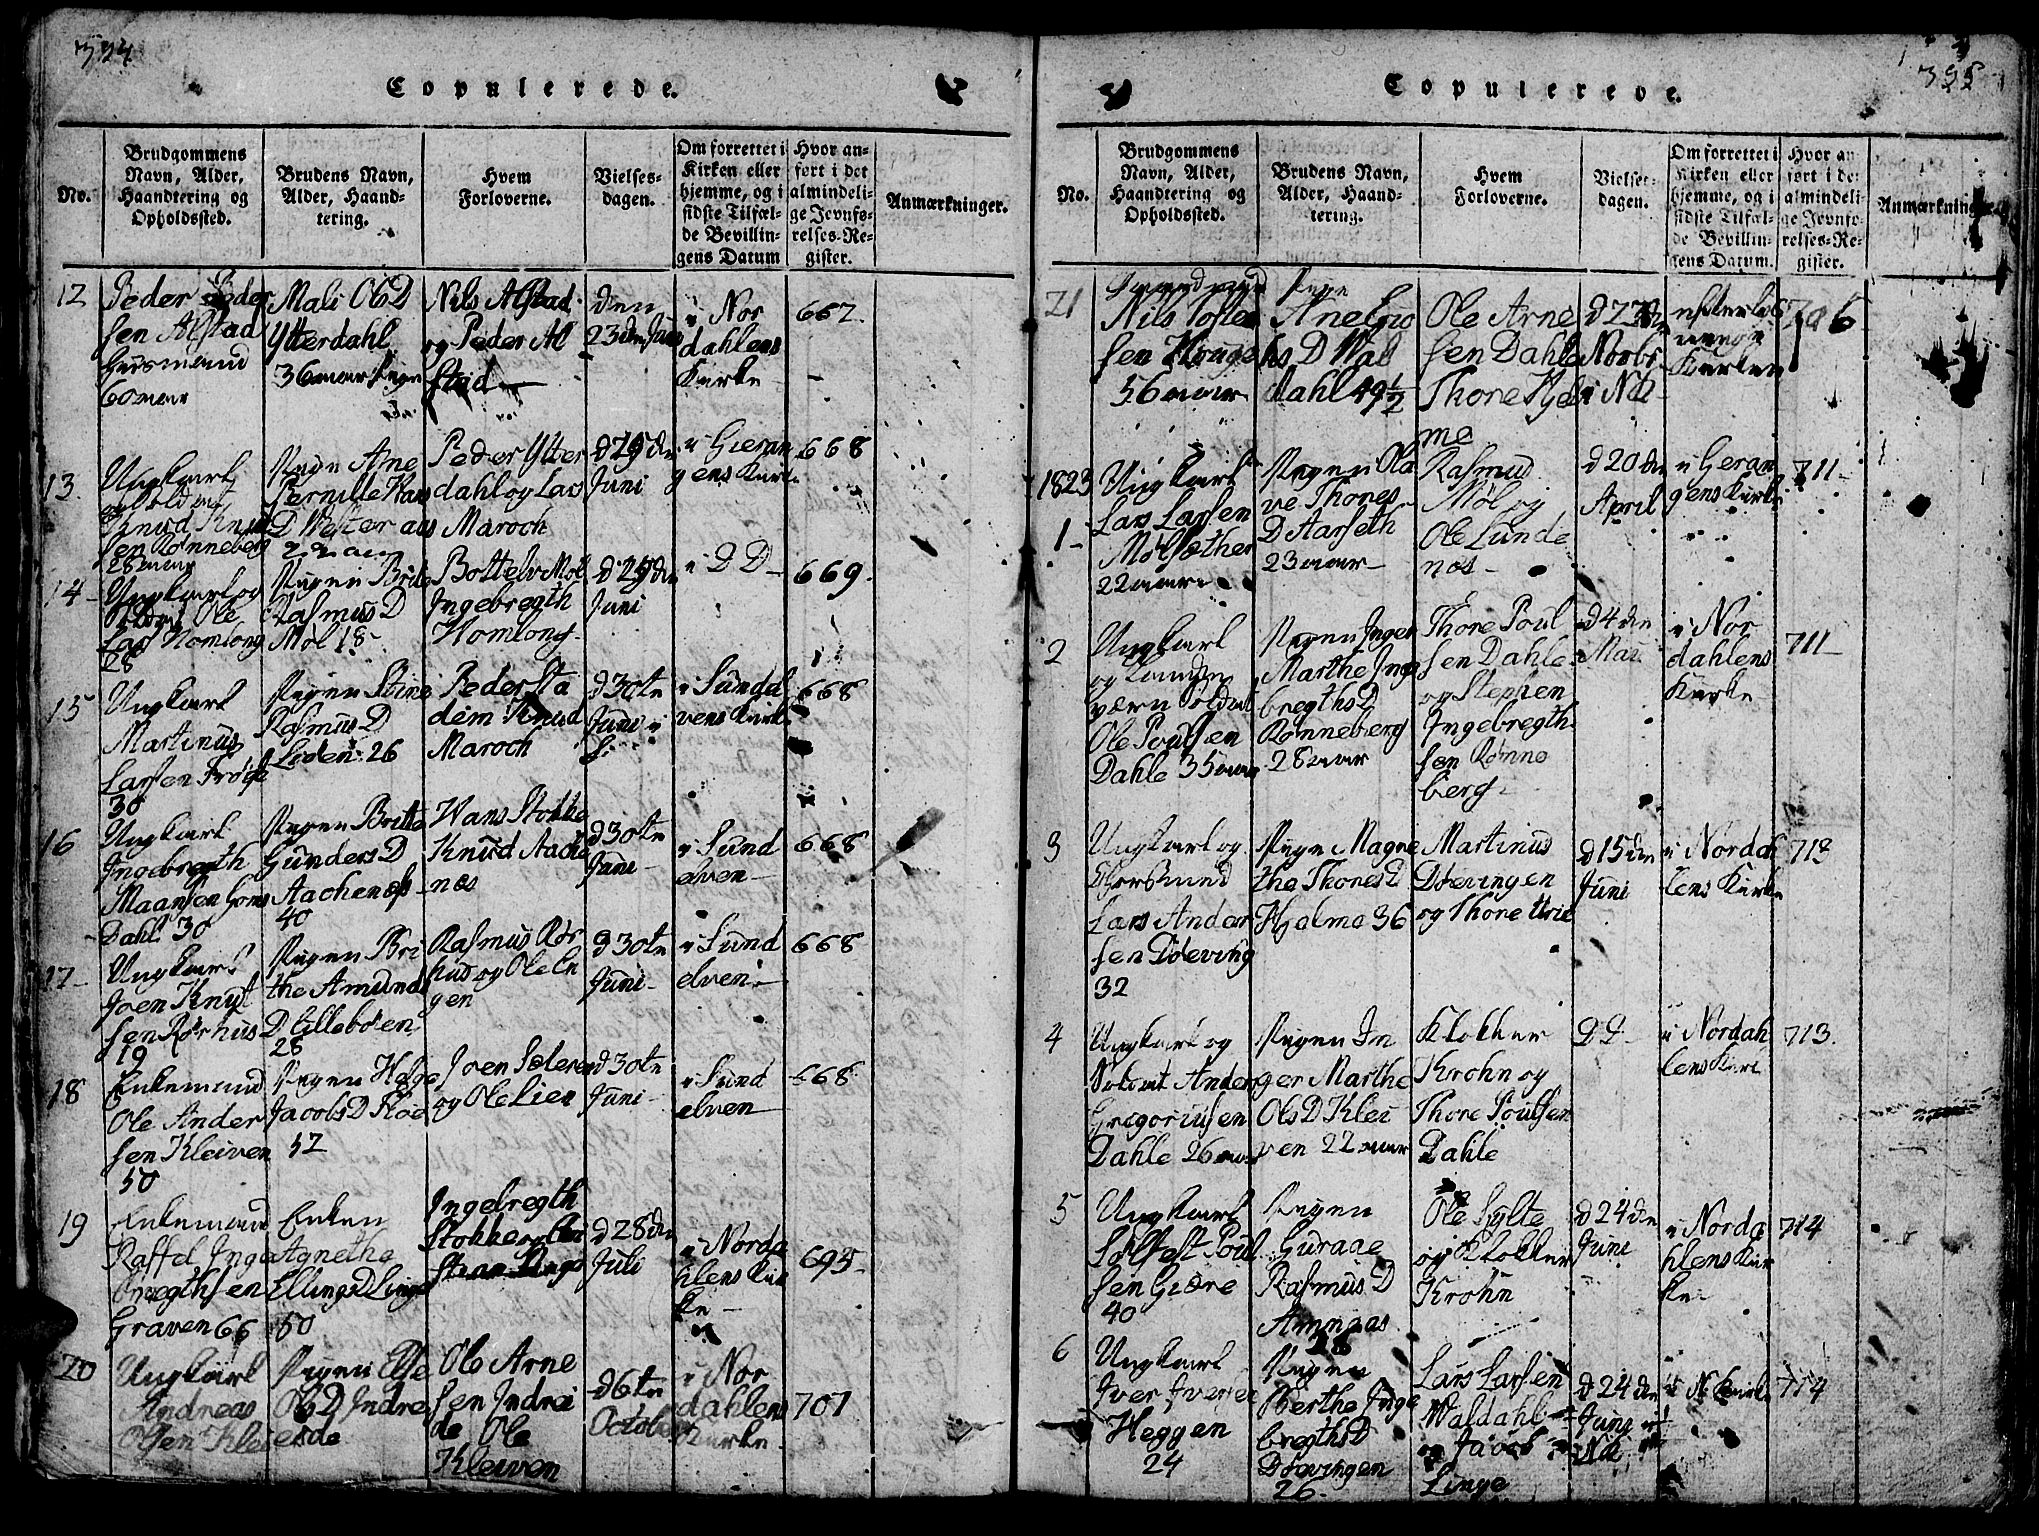 324
Copulerede.
No.
Brudgommens
Navn, Alder,
Haandtering og
Opholdssted.
Brudens Navn,
Alder, Haand-
tering.
Hvem
Forloverne.
Vielses-
dagen.
Om forrettet i
Kirken eller
hjemme, og i
sidste Tilfæl-
de Bevillin-
gens Datum
Hvor an-
ført i det
almindeli-
ge Jevnfø-
relses-Re-
gister.
Anmærkninger.
12
Peder Peder
sen Alstad
Huusmand
60 aar
Mali OlsD
Ytterdahl
36 aar Pige
Nils Alstad
og Peder Al
stad
den
23de Juni
i Nor
dahlens
Kirke
667.
13.
Ungkarl
og Soldat
Knud Knud
sen Rønneberg
28 aar
Pigen Ane
Pernille Hans
D Westeraas
22 aar
Peder Ytter
dahl og Lars
Maroch
d 25de
Juni
i Gieran
gens Kirke
668
14
Ungkarl og
Soldat Ole
Lars Homlong
28
Pigen Brite
Rasmus D
Møl 18
Bottelv Møl
Ingebregth
Homlong
d 25de
Juni
i D D
669.
15
Ungkarl
Martinus
Larsen Frøise
30
Pigen Stine
Rasmus D
Lioen 26
Peder Sta
dem Knud
Maroch
d 30te
Juni i
i Sundel
vens Kirke
668
16
Ungkarl
Ingebregth
Maansen Goms
Dahl 30
Pigen Britte
Gunders D
Aachenæs
40
Hans Stokke
Knud Aache
næs
d 30te
Juni
i Sund
elven
668
17
Ungkarl
Joen Knut
sen Rørhus
19
Pigen Bri
the Amunds
D Lillebøen
28
Rasmus Rør
hus og Ole En
gen
d 30te
Juni
i Sund
elven
668
18
Enkemand
Ole Ander
sen Kleiven
50
Pigen Helge
Jacobs D Floe
52
Joen Solerer
og Ole Lien
d 30te
Juni
i Sund
elven
668
19
Enkemand
Raffel Inge
bregthsen
Graven 66
Enken
Agnethe
EllingsD Linge
50
Ingebregth
Stokke og
d 28de
Juli
i Norda
hlens Kir
ke
695
20
Ungkarl
Andreas
Olsen Klei
Pigen Else
OlsD Indre
eide
Ole Arne
sen Indrei
de Ole
Kleiven
d 6te
October
i Nor
dahlens
Kirke
707
335
Copulerede.
No.
Brudgommens
Navn, Alder,
Haandtering og
Opholdssted.
Brudens Navn,
Alder, Haand-
tering.
Hvem
Forloverne.
Vielses-
dagen.
Om forrettet i
Kirken eller
hjemme, og i
sidste Tilfæl-
de Bevillin-
gens Datum.
Hvor an-
ført i det
almindeli-
ge Jevnfø-
relses-Re-
gister.
Anmærkninger.
21
Nils Joste
sen Houge
56 aar
Pige
Ane Gro
hs D Wal
dahl 49 1/2
Ole Arne
sen Dahle
Thore Hjel
me
d 22de
Novbr
i Nd
Kirken
706
1823
1
Ungkarl
Lars Larsen
Mølsæther
22 aar
Pigen Ola
ve Thores
D Aarseth
23 aar
Rasmus
Møl og
Ole Lunde
næs
d 20de
April
i Geran
gens Kirke
711
2
Ungkarl
og Lande
værn Soldat
Ole Poulsen
Dahle 35 aar
Pigen Inger
Marthe Inge
bregths D
Rønneberg
28 aar
Thore Poul
sen Dahle
og Stephen
Ingebregth
sen Rønne
berg
d 4de
Mai
i Nor
dahlens
Kirke
711
3
Ungkarl og
Lars Ander
sen Døeving
32
Pigen Magne
the Thores D
Hjelme 36
Martinus
Døevingen
og Thore Urie
d 15de
Juni
i Nordah
lens Kirke
713
4
Ungkarl og
Soldat Anders
Gregoriusen
Dahle 26 aar
Pigen In
ger Marthe
Ols D Klei
ven 22 aar
Klokker
Krohn og
Thore Poulsen
Dahle
D D
i Nordah
lens Kirke
713.
5
Ungkarl
Solfest Poul
sen Giære
40
Pigen
Guraae
Rasmus D
Ammaas
28
Ole Sylte
og Klokker
Krohn
d 24de
Juni
i Norda
hlens Kir
ke
714
6
Ungkarl
Iver Iversen
Heggen
24
Pigen
Berthe Inge
bregthsD
Døevingen
26.
Lars Larsen
Waldahl
og Jacob
Linge
d 24de
Juni
i N Kirke
714